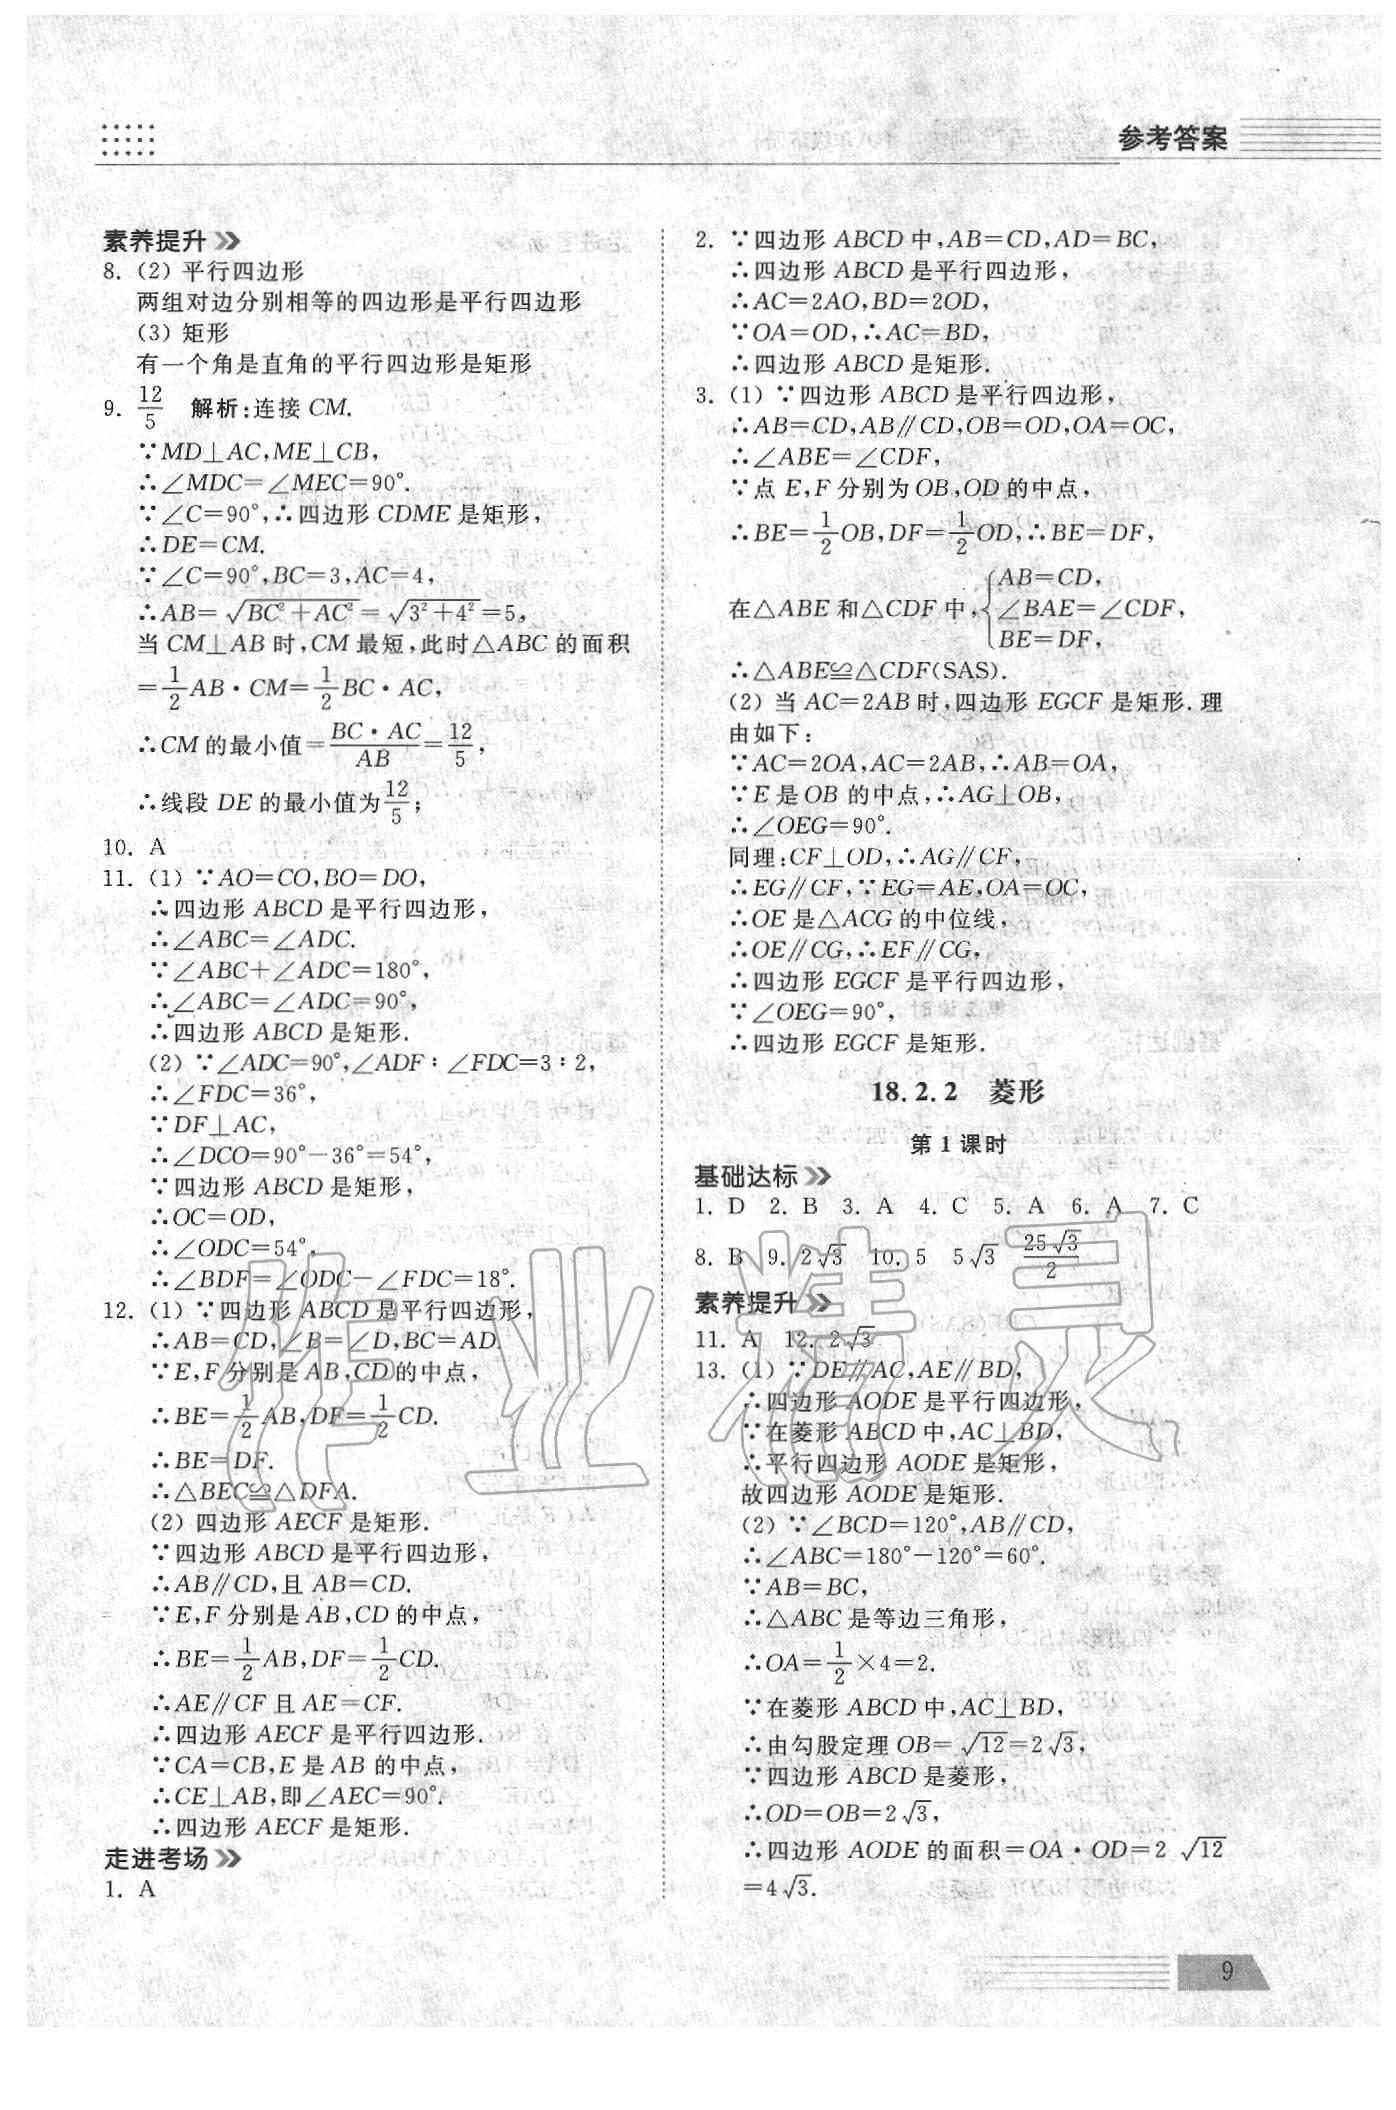 参考答案
素养提升
8. (2) 平行四边形
两组对边分别相等的四边形是平行四边形
(3) 矩形
有一个角是直角的平行四边形是矩形
9. 12/5 解析:连接 CM.
∵MD⊥AC,ME⊥CB,
∴∠MDC=∠MEC=90°.
∵∠C=90°,∴四边形 CDME 是矩形,
∴DE=CM.
∵∠C=90°,BC=3,AC=4,
∴AB=√(BC²+AC²)=√(3²+4²)=5,
当 CM⊥AB 时,CM 最短,此时△ABC 的面积
=1/2 AB·CM=1/2 BC·AC,
∴CM 的最小值=BC·AC/AB=12/5,
∴线段 DE 的最小值为12/5;
10. A
11. (1) ∵AO=CO,BO=DO,
∴四边形 ABCD 是平行四边形,
∴∠ABC=∠ADC.
∵∠ABC+∠ADC=180°,
∴∠ABC=∠ADC=90°,
∴四边形 ABCD 是矩形.
(2) ∵∠ADC=90°,∠ADF∶∠FDC=3∶2,
∴∠FDC=36°,
∵DF⊥AC,
∴∠DCO=90°-36°=54°,
∵四边形 ABCD 是矩形,
∴OC=OD,
∴∠ODC=54°,
∴∠BDF=∠ODC-∠FDC=18°.
12. (1) ∵四边形 ABCD 是平行四边形,
∴AB=CD,∠B=∠D,BC=AD.
∵E,F 分别是 AB,CD的中点,
∴BE=1/2 AB,DF=1/2 CD.
∴BE=DF.
∴△BEC≌△DFA.
(2) 四边形 AECF 是矩形.
∵四边形 ABCD 是平行四边形,
∴AB∥CD,且 AB=CD.
∵E,F 分别是 AB,CD 的中点,
∴BE=1/2 AB,DF=1/2 CD.
∴AE∥CF 且 AE=CF.
∴四边形 AECF 是平行四边形.
∵CA=CB,E 是 AB 的中点,
∴CE⊥AB,即∠AEC=90°.
∴四边形 AECF 是矩形.
走进考场
1. A
2. ∵四边形 ABCD 中,AB=CD,AD=BC,
∴四边形 ABCD 是平行四边形,
∴AC=2AO,BD=2OD,
∵OA=OD,∴AC=BD,
∴四边形 ABCD 是矩形.
3. (1) ∵四边形 ABCD 是平行四边形,
∴AB=CD,AB∥CD,OB=OD,OA=OC,
∴∠ABE=∠CDF,
∵点 E,F 分别为 OB,OD 的中点,
∴BE=1/2 OB,DF=1/2 OD,∴BE=DF,
在△ABE 和△CDF 中,{AB=CD,
∠BAE=∠CDF,
BE=DF,
∴△ABE≌△CDF(SAS).
(2) 当 AC=2AB 时,四边形 EGCF 是矩形.理
由如下:
∵AC=2OA,AC=2AB,∴AB=OA,
∵E 是 OB 的中点,∴AG⊥OB,
∴∠OEG=90°.
同理:CF⊥OD,∴AG∥CF,
∴EG∥CF,∵EG=AE,OA=OC,
∴OE 是△ACG 的中位线,
∴OE∥CG,∴EF∥CG,
∴四边形 EGCF 是平行四边形,
∵∠OEG=90°,
∴四边形 EGCF 是矩形.
18.2.2 菱形
第 1 课时
基础达标
1. D 2. B 3. A 4. C 5. A 6. A 7. C
8. B 9. 2√3 10. 5 5√3 25√3/2
素养提升
11. A 12. 2√3
13. (1) ∵DE∥AC,AE∥BD,
∴四边形 AODE 是平行四边形,
∵在菱形 ABCD 中,AC⊥BD,
∴平行四边形 AODE 是矩形,
故四边形 AODE 是矩形.
(2) ∵∠BCD=120°,AB∥CD,
∴∠ABC=180°-120°=60°.
∵AB=BC,
∴△ABC 是等边三角形,
∴OA=1/2×4=2.
∵在菱形 ABCD 中,AC⊥BD,
∴由勾股定理 OB=√12=2√3,
∵四边形 ABCD 是菱形,
∴OD=OB=2√3,
∴四边形 AODE 的面积=OA·OD=2√12
=4√3.
作业精灵
9